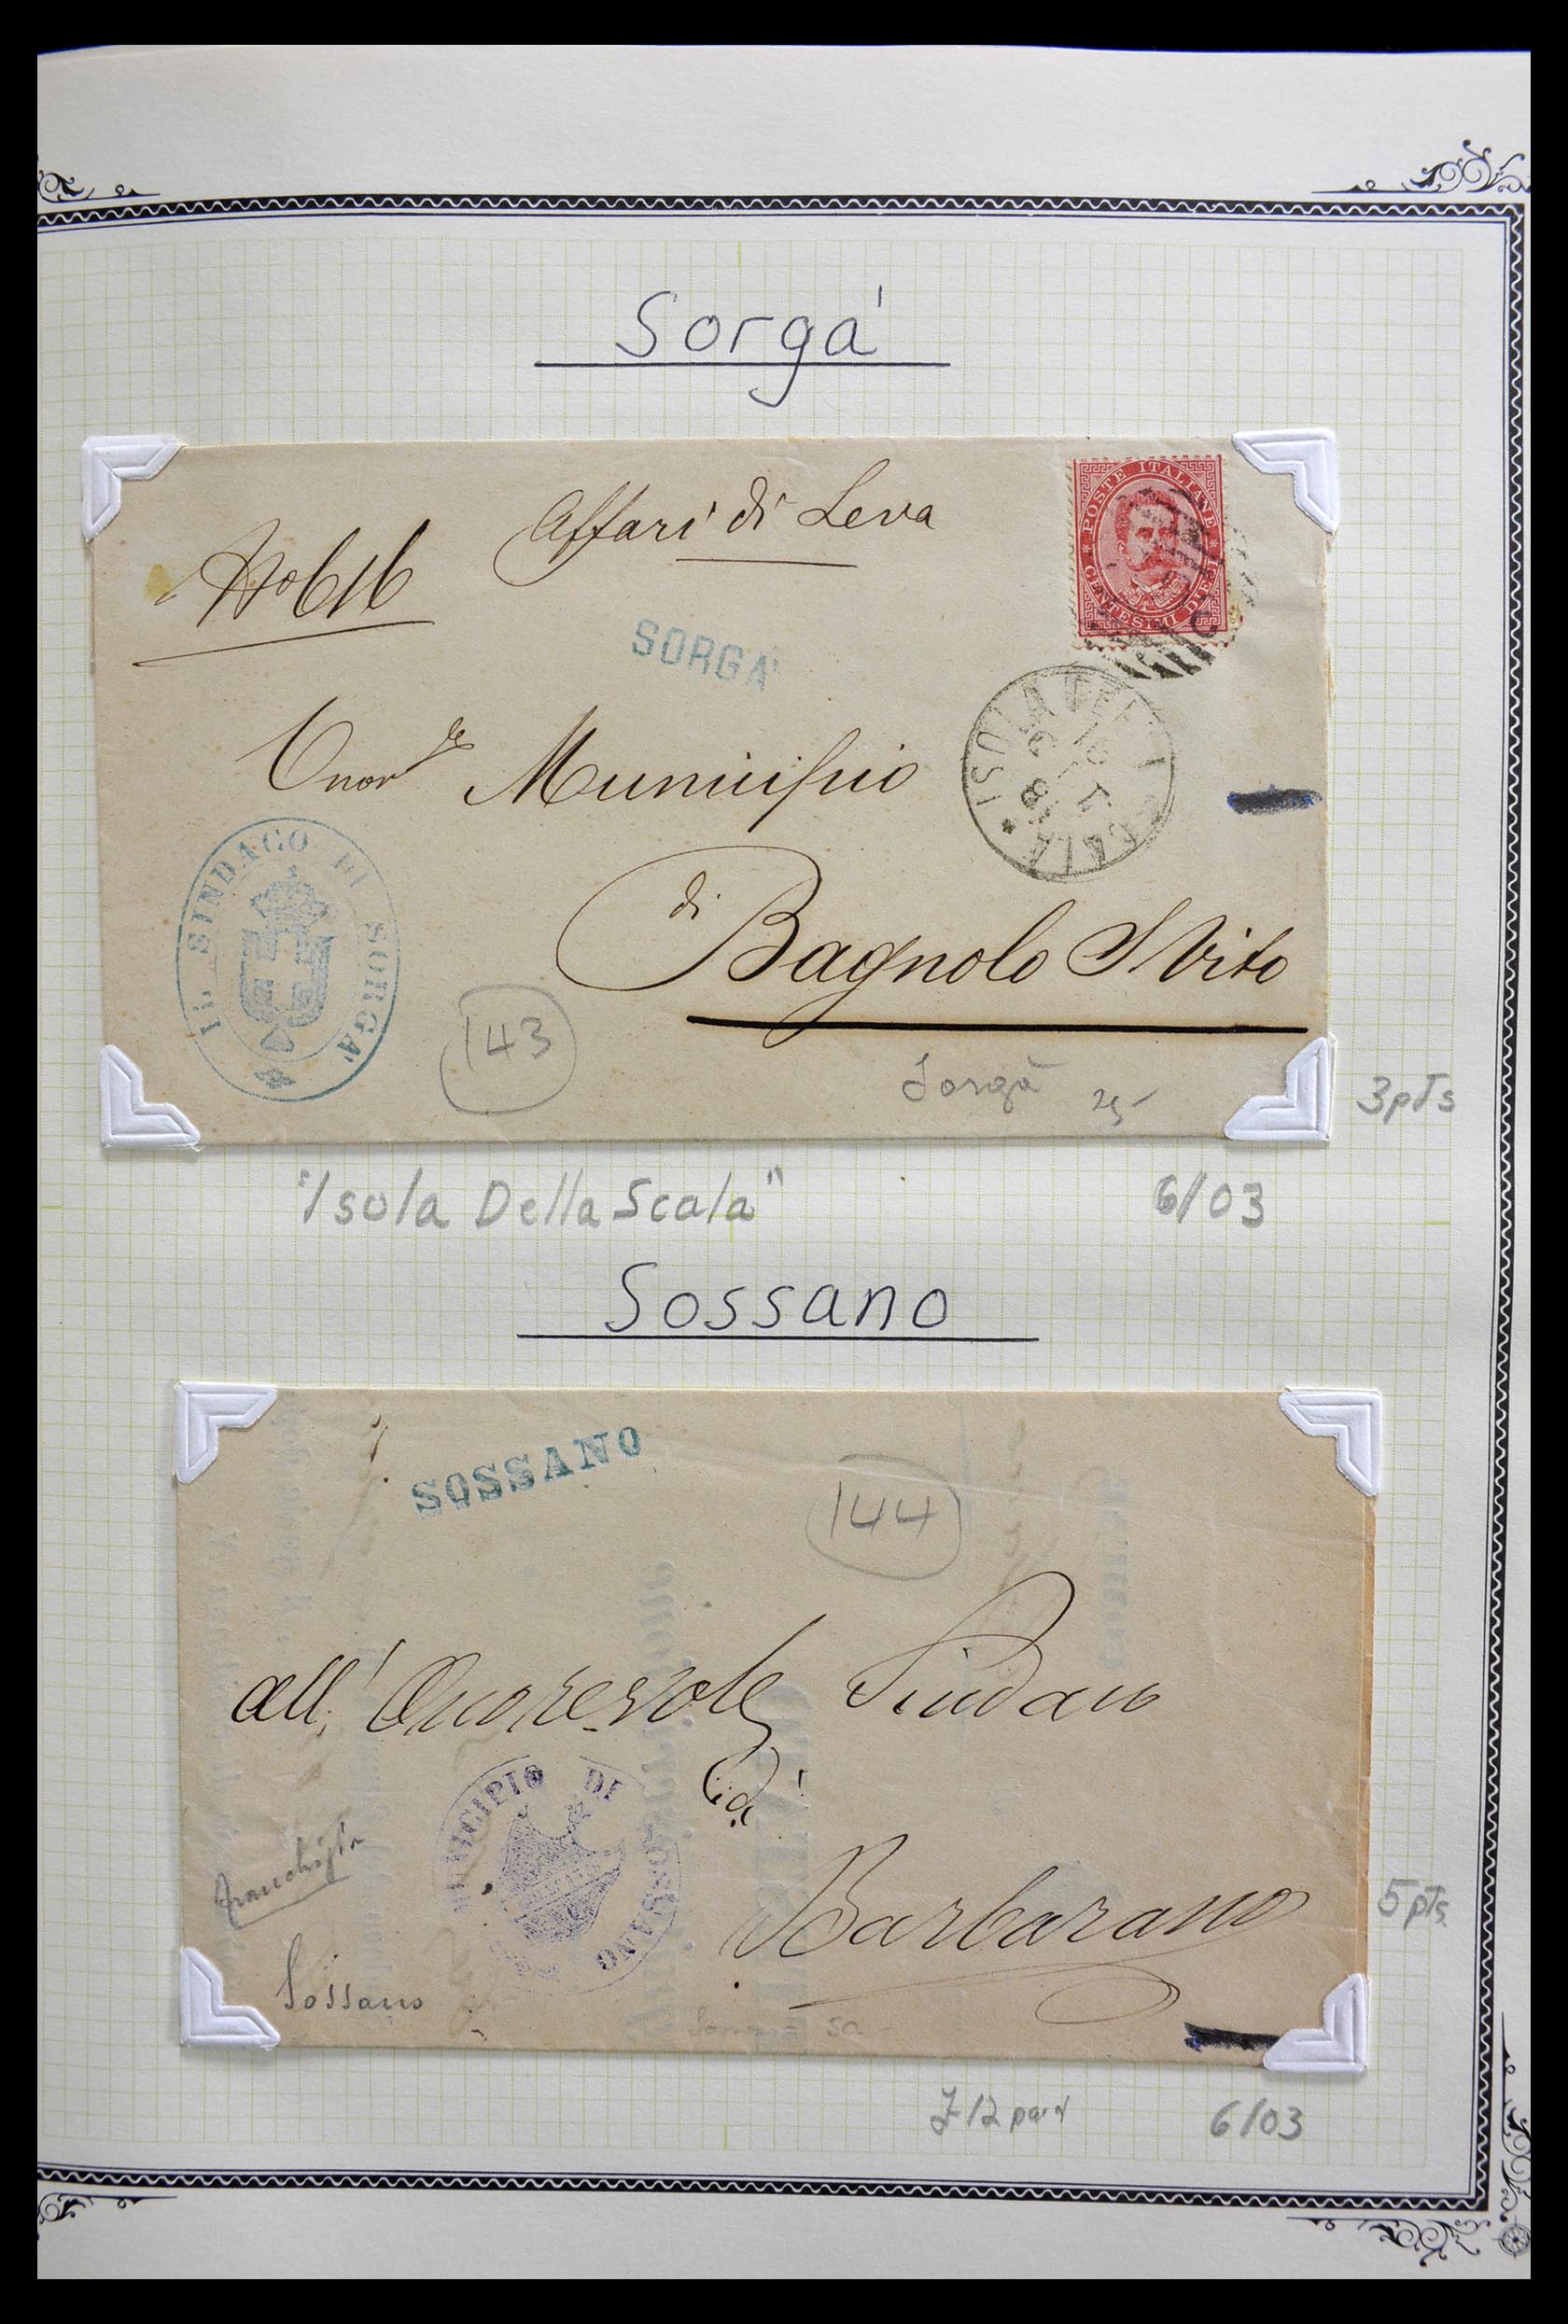 Sorgá
Affari di Leva
No 616
POSTE ITALIANE
CENTESIMI DIECI
SORGA'
Onorle Municipio
ISOLA
IL SINDACO DI SORGA'
di
Bagnolo S Vito
143
Sorgà
25-
3pts
"Isola Della Scala"
6/03
Sossano
SOSSANO
144
all' Onorevole Sindaco
di
MUNICIPIO DI SOSSANO
Barbarano
franchigia
5pts
Sossano
6/03